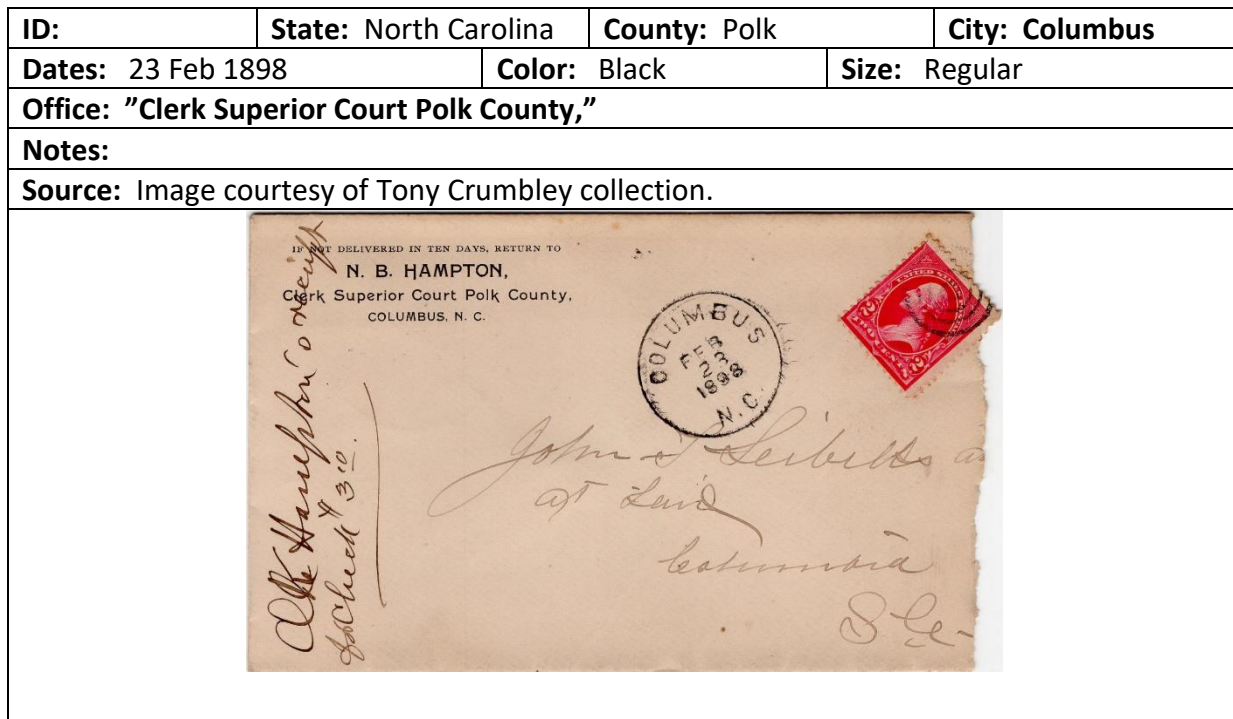 ID: State: North Carolina County: Polk City: Columbus
Dates: 23 Feb 1898 Color: Black Size: Regular
Office: ”Clerk Superior Court Polk County,”
Notes:
Source: Image courtesy of Tony Crumbley collection.
IF NOT DELIVERED IN TEN DAYS, RETURN TO
N. B. HAMPTON,
Clerk Superior Court Polk County,
COLUMBUS, N. C.
COLUMBUS
FEB
23
1898
N.C.
UNITED STATES
2 2
TWO CENTS
John
at Law
Columbia
S
Hampton receipt
for Check # 3 10